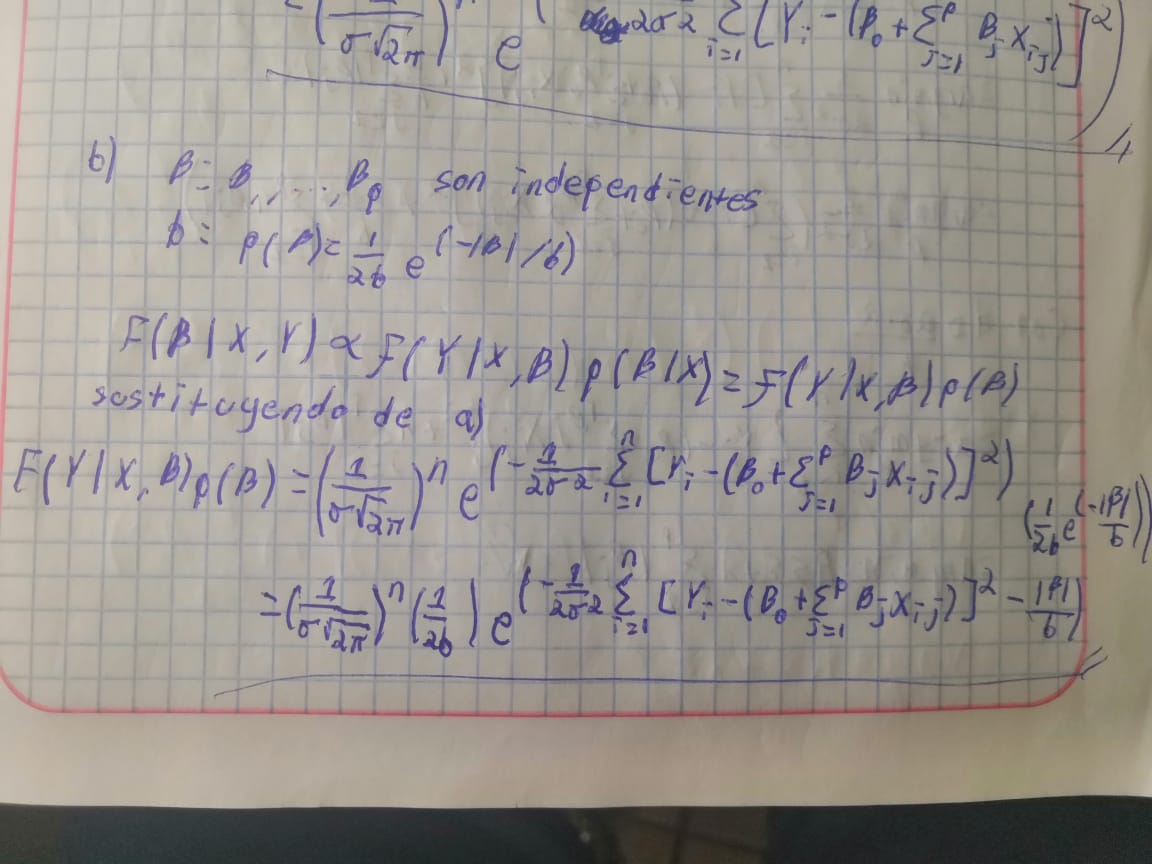 (1/(σ√2π))ⁿ e^( 2σ2 Σ_{i=1} [Y_i - (B_0 + Σ_{j=1}^p B_j X_ij)]^2)
b) B = B_1, ..., B_p son independientes
b = p(B) = 1/2b e^(-|B|/b)
F(B|X,Y) ∝ F(Y|X,B) p(B|X) = F(Y|X,B) p(B)
sustituyendo de a)
F(Y|X,B) p(B) = (1/(σ√2π))^n e^(-1/2σ2 Σ_{i=1}^n [Y_i - (B_0 + Σ_{j=1}^p B_j X_ij)]^2) (1/2b e^(-|B|/b))
= (1/(σ√2π))^n (1/2b) e^(-1/2σ2 Σ_{i=1}^n [Y_i - (B_0 + Σ_{j=1}^p B_j X_ij)]^2 - |B|/b)